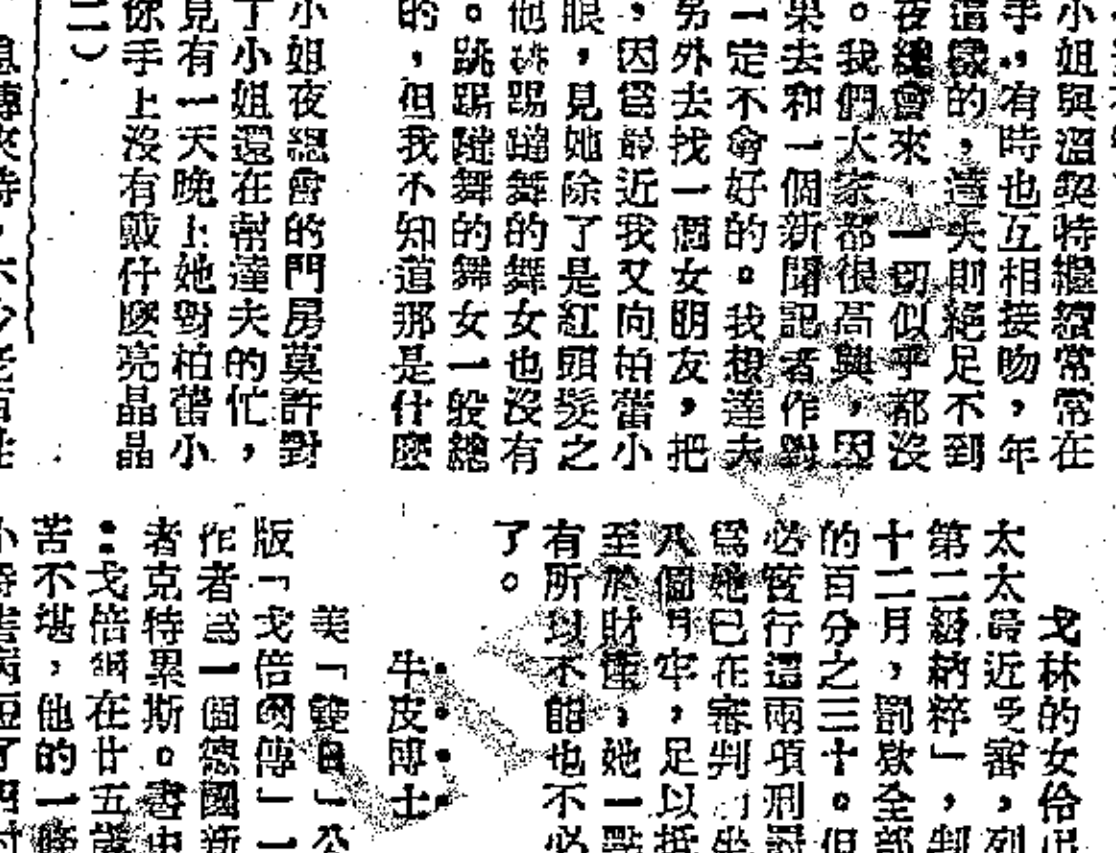 小姐與溫契特繼續常常在
手，有時也互相接吻，年
的，達夫則絕足不到
夜總會來，一切似乎都沒
。我們大家都很高興，因
果去和一個新聞記者作對
一定不會好的。我想達夫
另外去找一個女朋友，把
，因爲最近我又向柏蕾小
眼，見她除了是紅頭髮之
他跳踢躂舞的舞女也沒有
。跳踢躂舞的舞女一般總
的，但我不知道那是什麼
小姐夜總會的門房莫許對
丁小姐還在幫達夫的忙，
見有一天晚上她對柏蕾小
你手上沒有戴什麼亮晶晶
二）
傳來時，不少老百姓
戈林的女伶
太太最近受審，列
第二級納粹」，判
十二月，罰欵全部
的百分之三十。但
必行這兩項刑罰
爲她已在審判前坐
八個月牢，足以抵
至於財產，她一點
有所以不能也不必
了。
牛皮博士
美「雙日」公
版「戈倍爾傳」一
作者爲一個德國新
者克特累斯。書中
：戈倍爾在廿五歲
苦不堪，他的一條
短了四寸